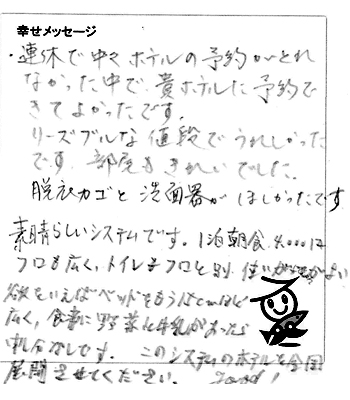 幸せメッセージ
・連休で中々ホテルの予約がとれ
なかった中で、貴ホテルに予約で
きてよかったです。
リーズブルな値段でうれしかった
です。部屋もきれいでした。
脱衣カゴと洗面器がほしかったです
素晴らしいシステムです。1泊朝食
フロも広く、トイレもフロと別、使いがってがよい
欲をいえばベッドをもう
広く、食事に野菜と牛乳があったら
申し分なしです。このシステムのホテルを全国
展開させてください。Good!